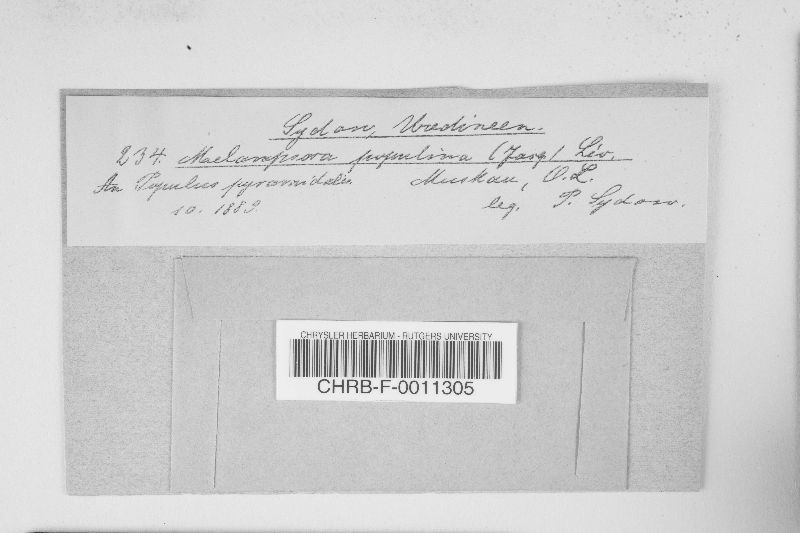 Sydow, Uredineen.
234. Melampsora populina (Jacq.) Lév.
An Populus pyramidalis. Muskau, O.L.
10. 1889. leg. P. Sydow.
CHRYSLER HERBARIUM - RUTGERS UNIVERSITY
CHRB-F-0011305